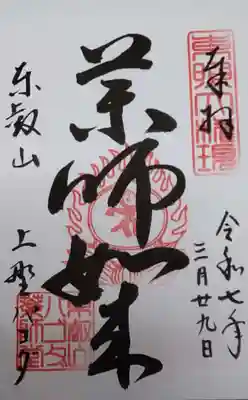 奉拝
令和七年
三月廿九日
薬師如来
東叡山
上野パゴダ